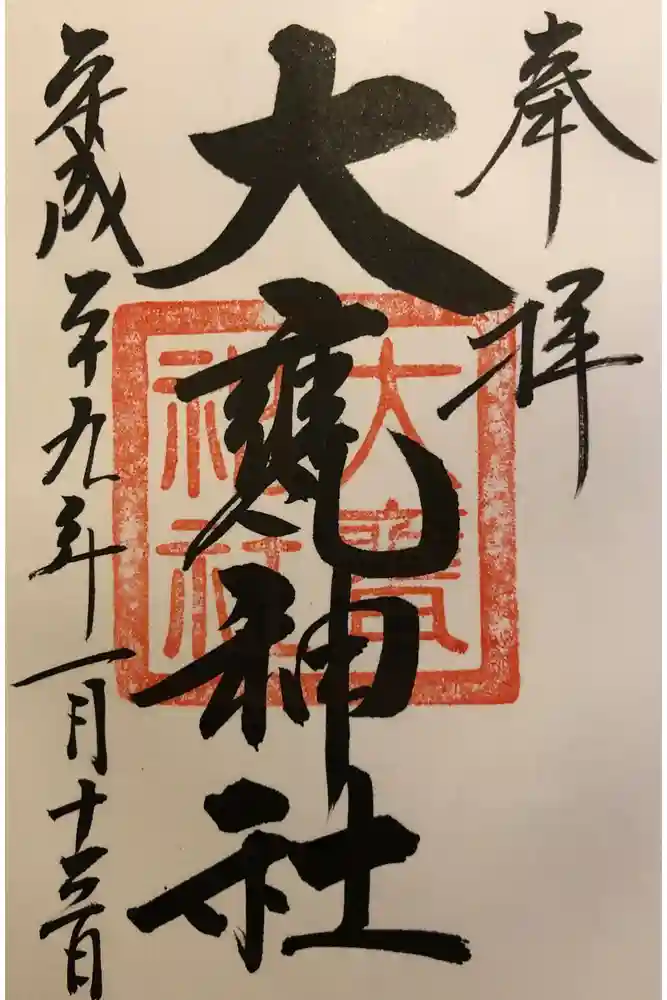 奉拝
大甕神社
平成二十九年一月十三日
大甕
神社